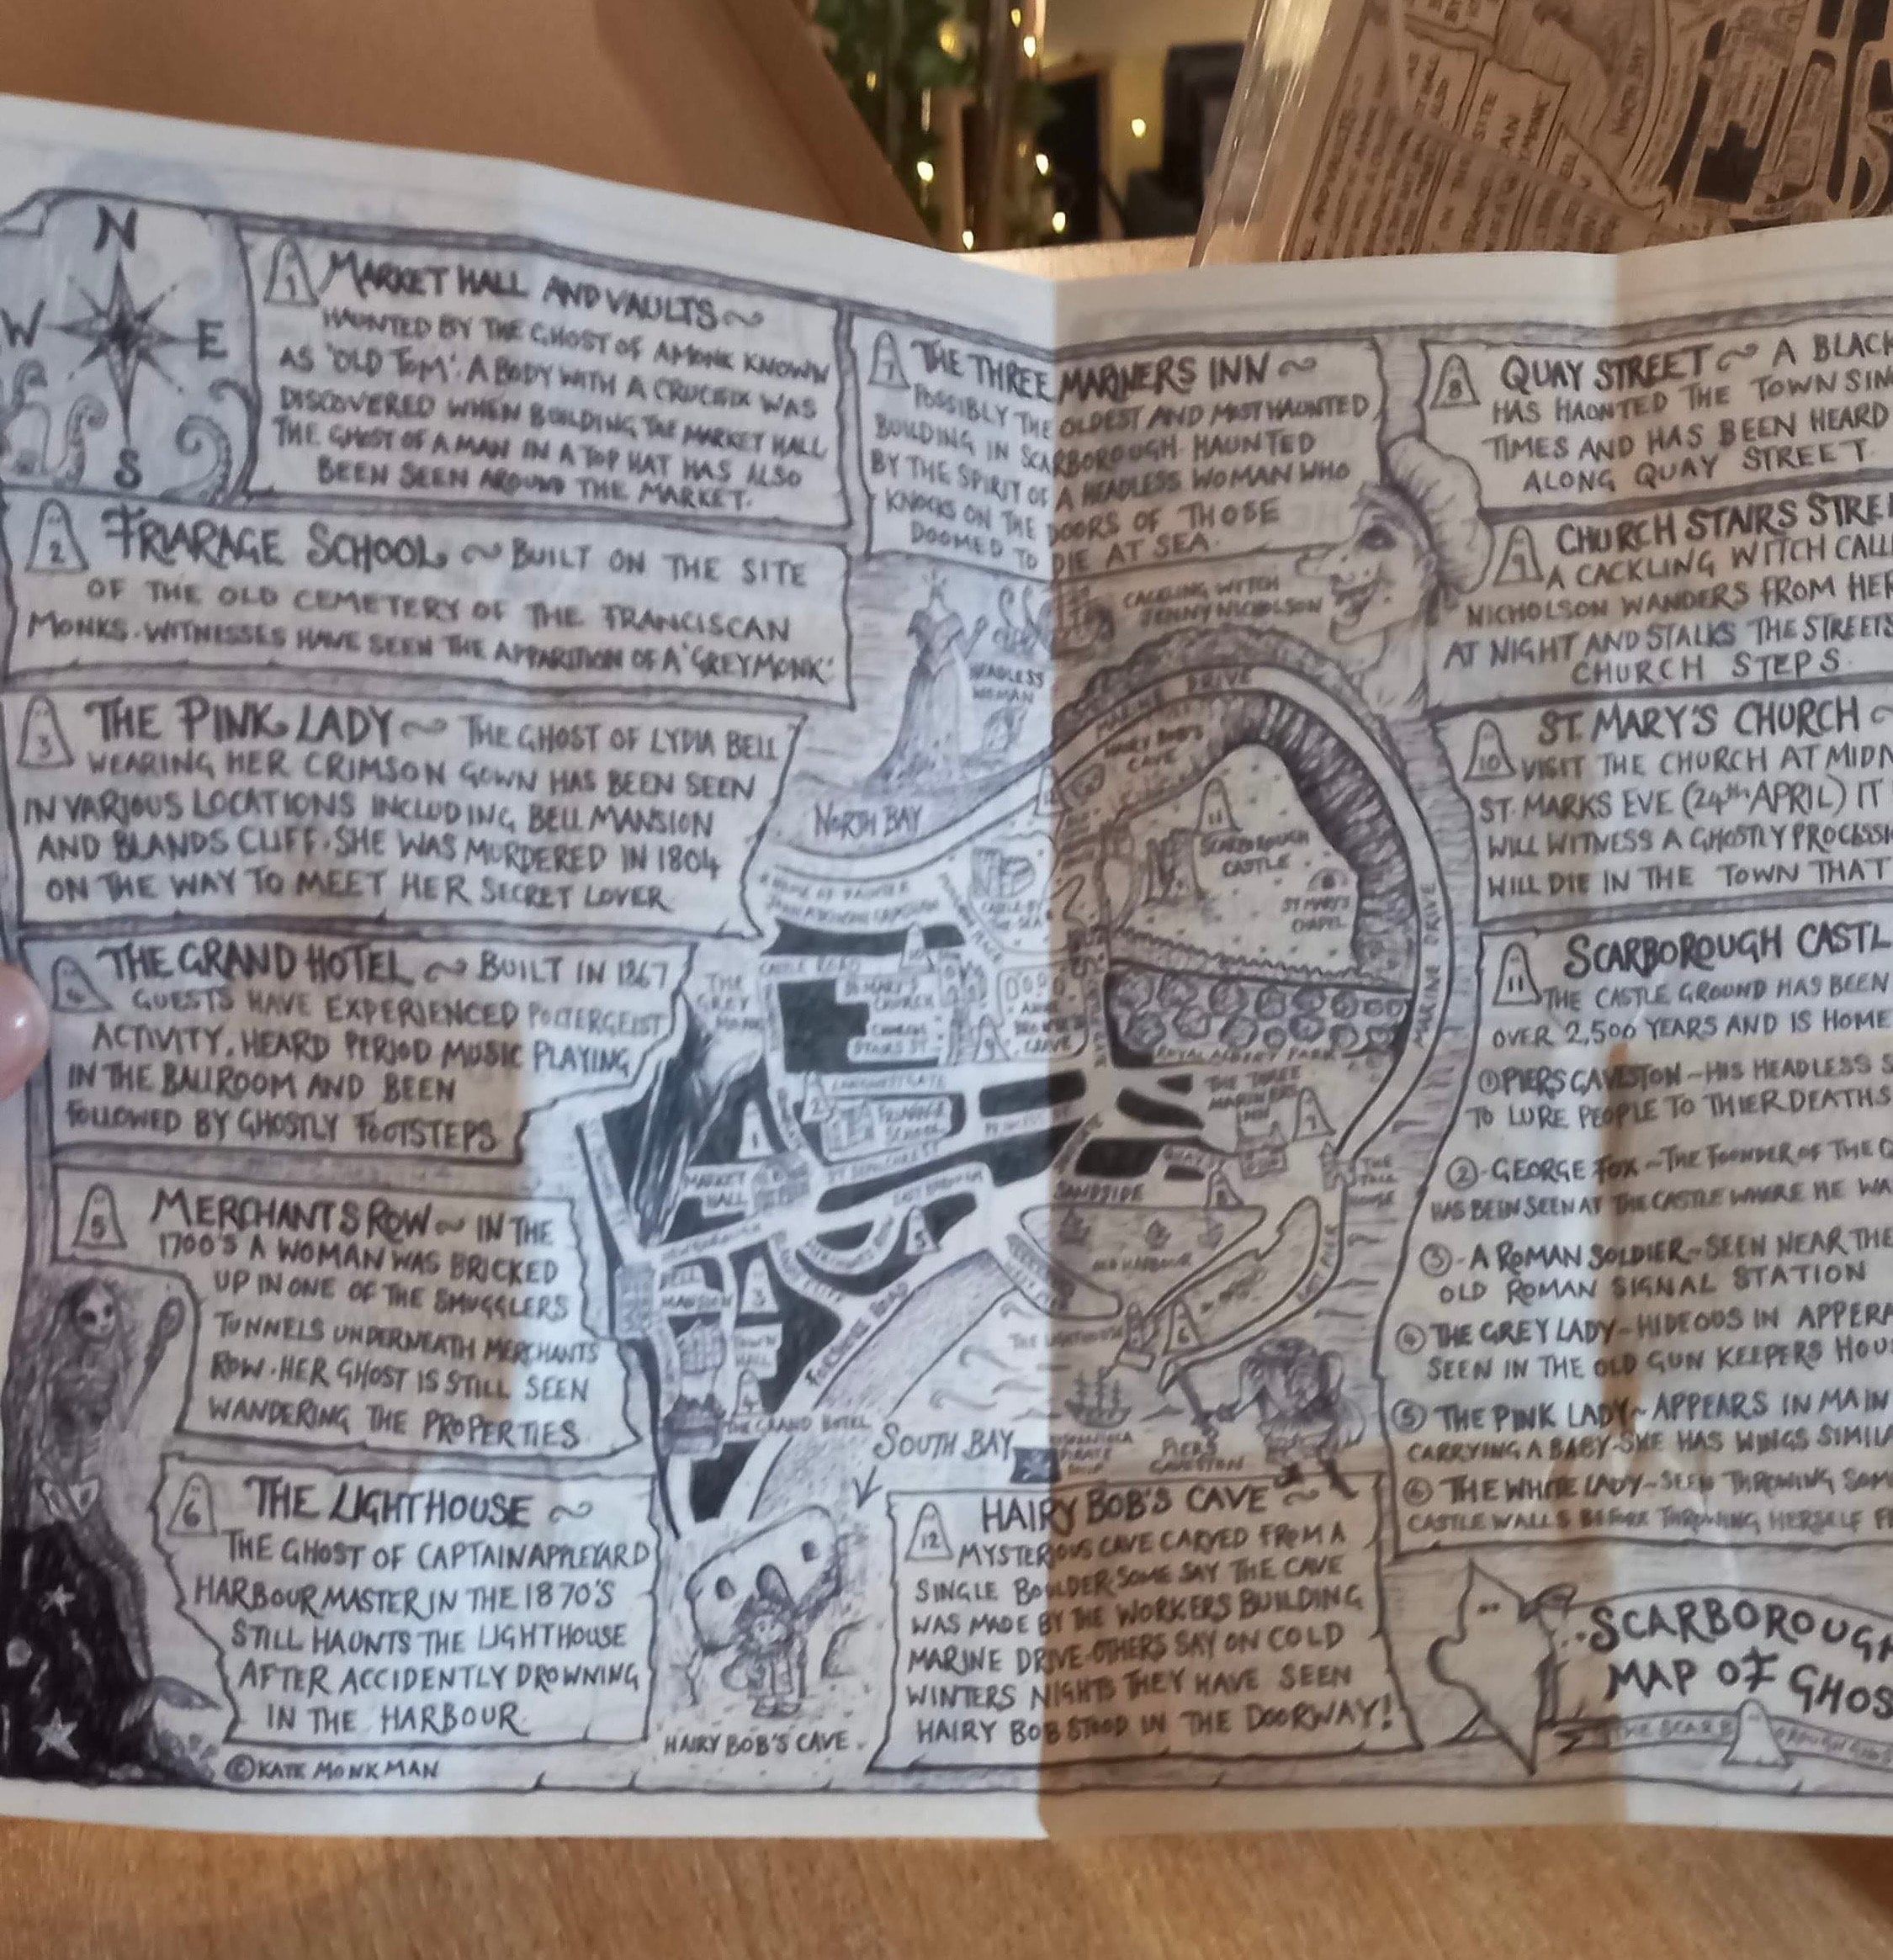 N
W
E
S
1 MARKET HALL AND VAULTS ~
HAUNTED BY THE GHOST OF A MONK KNOWN
AS 'OLD TOM'. A BODY WITH A CRUCIFIX WAS
DISCOVERED WHEN BUILDING THE MARKET HALL
THE GHOST OF A MAN IN A TOP HAT HAS ALSO
BEEN SEEN AROUND THE MARKET.
2 FRIARAGE SCHOOL ~ BUILT ON THE SITE
OF THE OLD CEMETERY OF THE FRANCISCAN
MONKS. WITNESSES HAVE SEEN THE APPARITION OF A 'GREY MONK.'
3 THE PINK LADY ~ THE GHOST OF LYDIA BELL
WEARING HER CRIMSON GOWN HAS BEEN SEEN
IN VARIOUS LOCATIONS INCLUDING BELL MANSION
AND BLANDS CLIFF. SHE WAS MURDERED IN 1804
ON THE WAY TO MEET HER SECRET LOVER.
4 THE GRAND HOTEL ~ BUILT IN 1867
GUESTS HAVE EXPERIENCED POLTERGEIST
ACTIVITY, HEARD PERIOD MUSIC PLAYING
IN THE BALLROOM AND BEEN
FOLLOWED BY GHOSTLY FOOTSTEPS
5 MERCHANTS ROW ~ IN THE
1700'S A WOMAN WAS BRICKED
UP IN ONE OF THE SMUGGLERS
TUNNELS UNDERNEATH MERCHANTS
ROW. HER GHOST IS STILL SEEN
WANDERING THE PROPERTIES.
6 THE LIGHTHOUSE ~
THE GHOST OF CAPTAIN APPLEYARD
HARBOUR MASTER IN THE 1870'S
STILL HAUNTS THE LIGHTHOUSE
AFTER ACCIDENTLY DROWNING
IN THE HARBOUR.
©KATE MONKMAN
7 THE THREE MARINERS INN ~
POSSIBLY THE OLDEST AND MOST HAUNTED
BUILDING IN SCARBOROUGH. HAUNTED
BY THE SPIRIT OF A HEADLESS WOMAN WHO
KNOCKS ON THE DOORS OF THOSE
DOOMED TO DIE AT SEA.
CACKLING WITCH
JENNY NICHOLSON
HEADLESS
WOMAN
MARINE DRIVE
HAIRY BOB'S
CAVE
NORTH BAY
11
SCARBOROUGH
CASTLE
ST MARY'S
CHAPEL
MARINE DRIVE
CASTLE BY
THE SEA
CASTLE ROAD
10
ST MARY'S
CHURCH
CHURCH
STAIRS ST
9
ANNE
BRONTE'S
GRAVE
ROYAL ALBERT PARK
THE
GREY
MONK
LONGWESTGATE
2
FRIARAGE
SCHOOL
THE THREE
MARINERS
INN
7
1
MARKET
HALL
EASTBOROUGH
SANDSIDE
8
5
BELL
MANSION
3
TOWN
HALL
FORESHORE ROAD
OLD HARBOUR
THE LIGHTHOUSE
6
4
THE GRAND HOTEL
SOUTH BAY
HISPANIOLA
PIRATE
SHIP
PIERS
GAVESTON
HAIRY BOB'S CAVE.
12 HAIRY BOB'S CAVE ~
MYSTERIOUS CAVE CARVED FROM A
SINGLE BOULDER SOME SAY THE CAVE
WAS MADE BY THE WORKERS BUILDING
MARINE DRIVE-OTHERS SAY ON COLD
WINTERS NIGHTS THEY HAVE SEEN
HAIRY BOB STOOD IN THE DOORWAY!
8 QUAY STREET ~ A BLACK
HAS HAUNTED THE TOWN SIN
TIMES AND HAS BEEN HEARD
ALONG QUAY STREET.
9 CHURCH STAIRS STRE
A CACKLING WITCH CALL
NICHOLSON WANDERS FROM HER
AT NIGHT AND STALKS THE STREETS
CHURCH STEPS.
10 ST. MARY'S CHURCH ~
VISIT THE CHURCH AT MIDN
ST. MARKS EVE (24th APRIL) IT
WILL WITNESS A GHOSTLY PROCESSI
WILL DIE IN THE TOWN THAT
11 SCARBOROUGH CASTL
THE CASTLE GROUND HAS BEEN
OVER 2,500 YEARS AND IS HOME
① PIERS GAVESTON - HIS HEADLESS S
TO LURE PEOPLE TO THIER DEATHS
② - GEORGE FOX - THE FOUNDER OF THE Q
HAS BEEN SEEN AT THE CASTLE WHERE HE WA
③ - A ROMAN SOLDIER - SEEN NEAR THE
OLD ROMAN SIGNAL STATION
④ THE GREY LADY - HIDEOUS IN APPERA
SEEN IN THE OLD GUN KEEPERS HOU
⑤ THE PINK LADY - APPEARS IN MAIN
CARRYING A BABY - SHE HAS WINGS SIMILA
⑥ THE WHITE LADY - SEEN THROWING SOM
CASTLE WALLS BEFORE THROWING HERSELF F
SCARBOROUGH
MAP OF GHOS